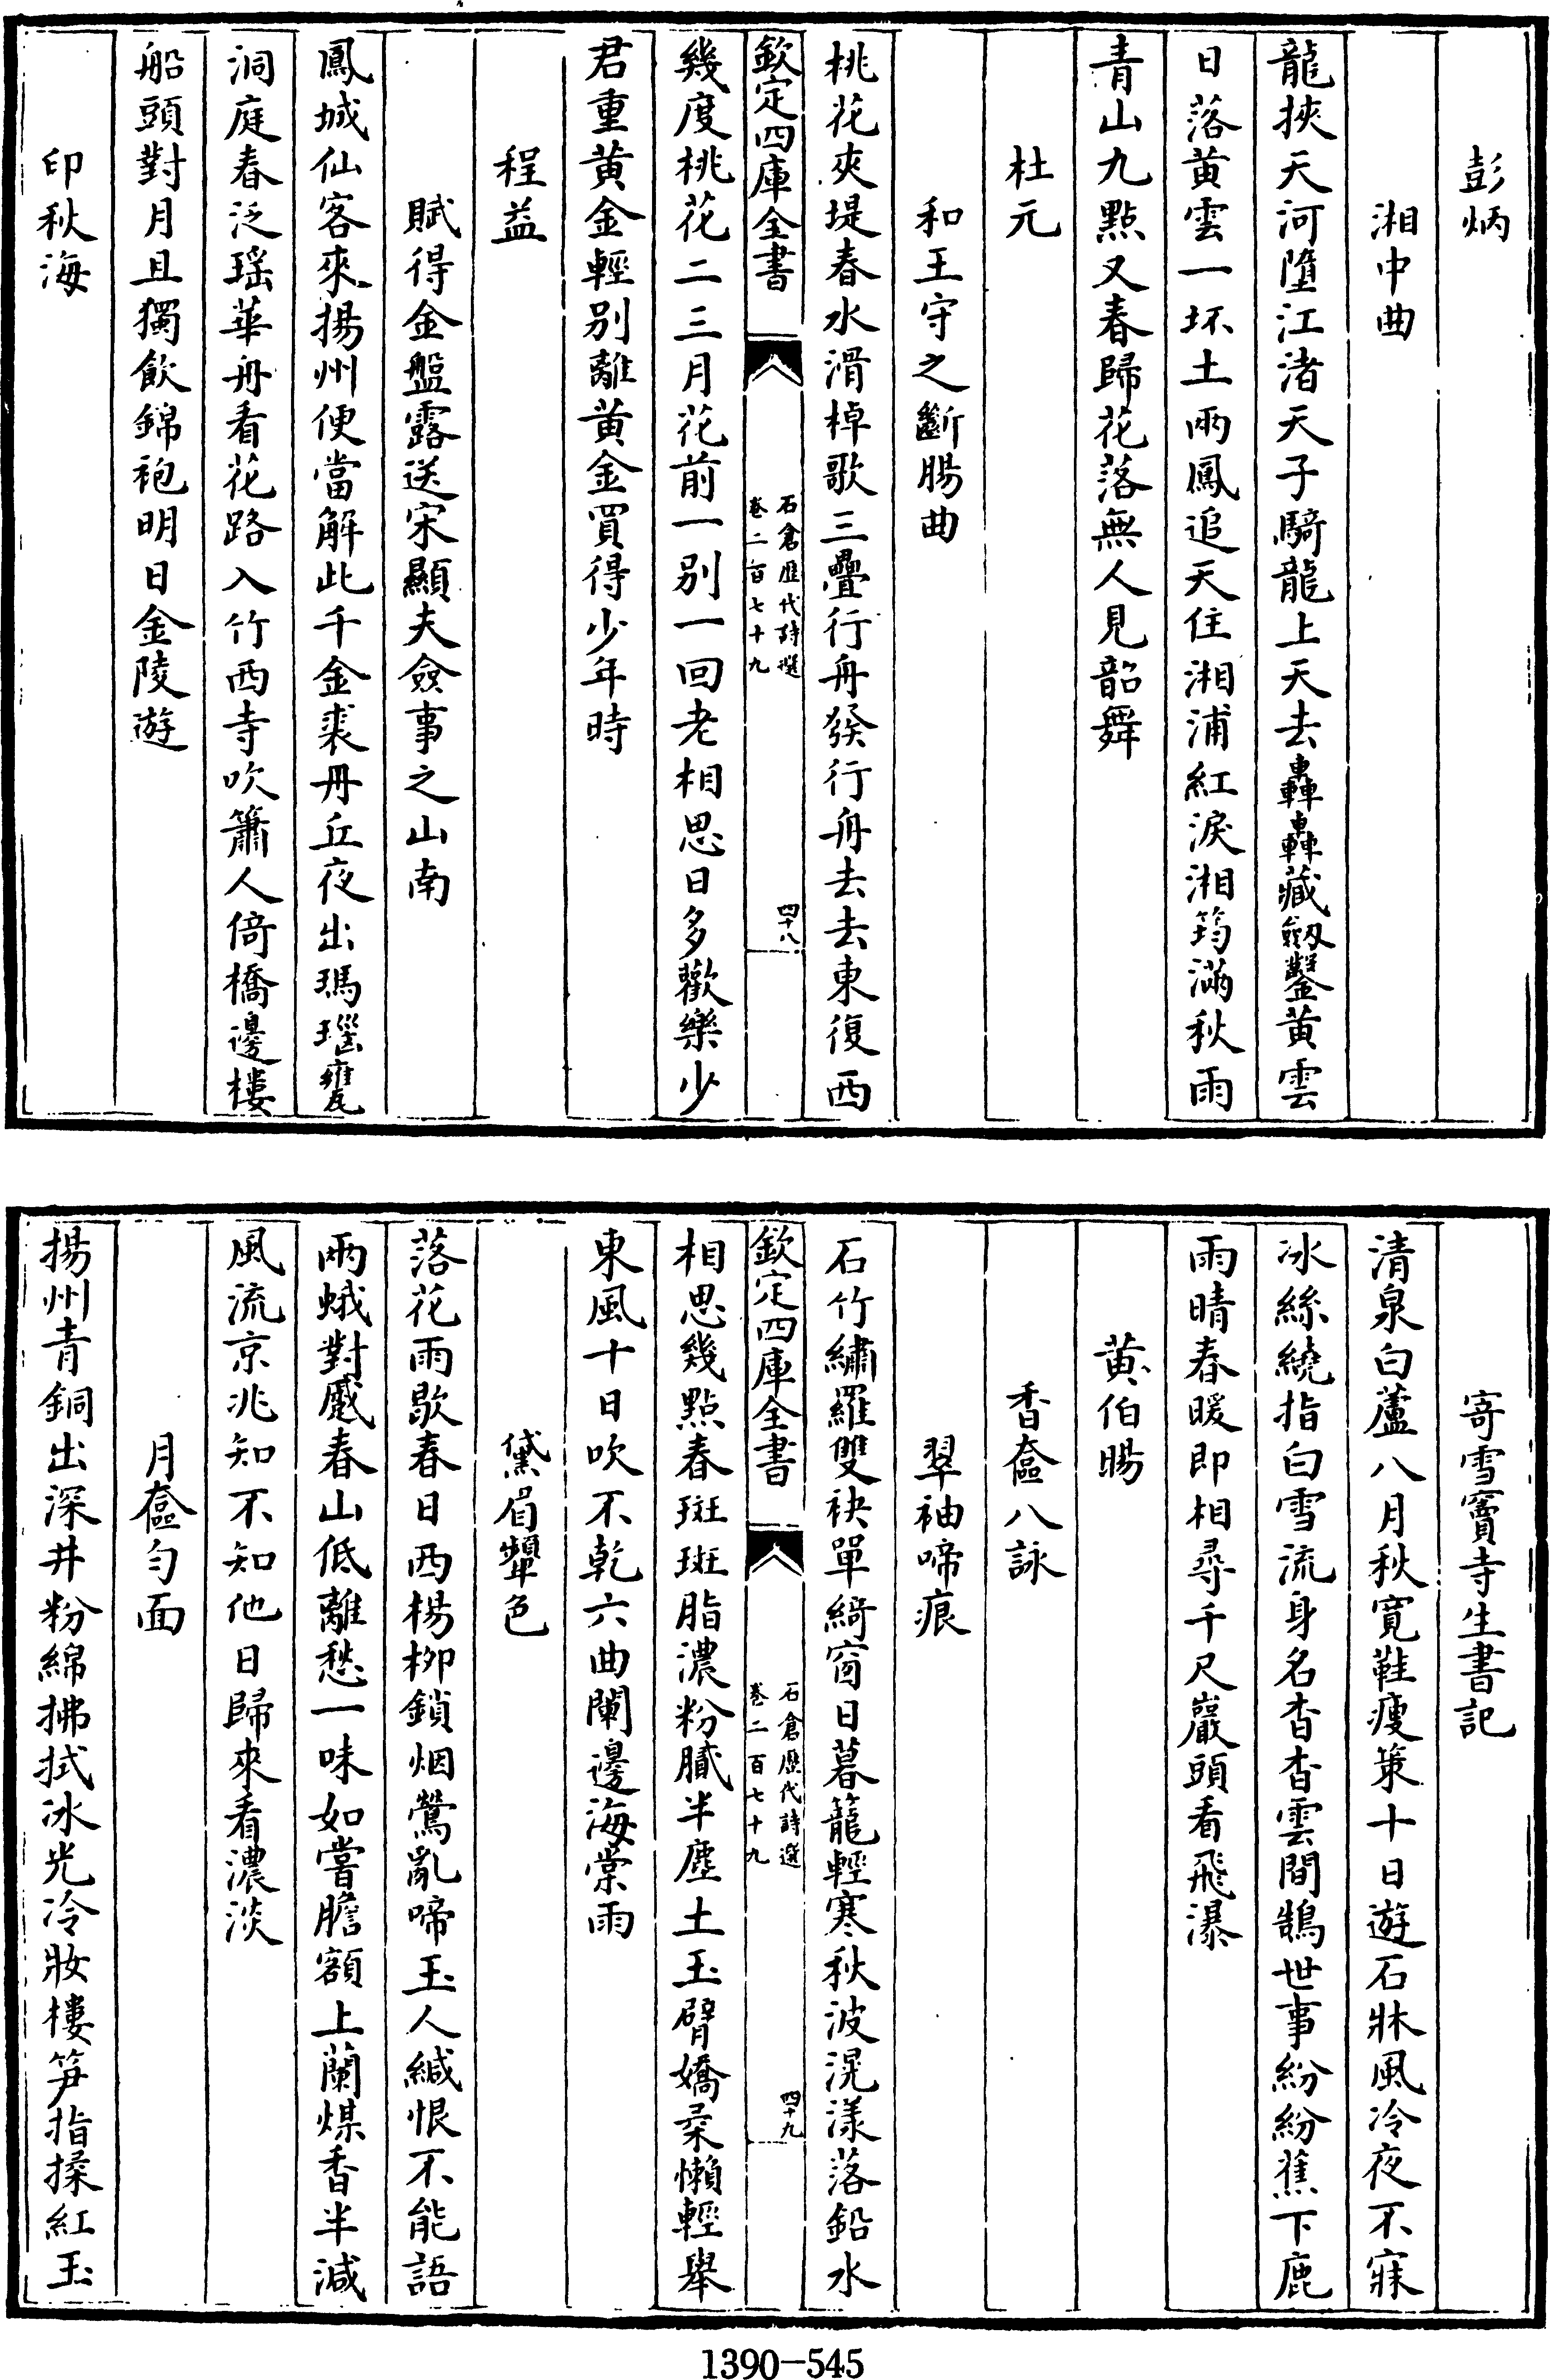 彭炳
湘中曲
龍挾天河墮江渚天子騎龍上天去轟轟藏劔鑿黄雲
日落黄雲一坏土兩鳳追天住湘浦紅淚湘筠滿秋雨
青山九點又春歸花落無人見韶舞
杜元
和王守之斷腸曲
桃花夾堤春水滑棹歌三疊行舟發行舟去去東復西
欽定四庫全書
石倉歷代詩選
卷二百七十九
四十八
幾度桃花二三月花前一别一回老相思日多歡樂少
君重黄金輕别離黄金買得少年時
程益
賦得金盤露送宋顯夫僉事之山南
鳳城仙客來揚州便當解此千金裘丹丘夜出瑪瑙甕
洞庭春泛瑶華舟看花路入竹西寺吹簫人倚橋邊樓
船頭對月且獨飲錦袍明日金陵遊
印秋海
寄雪竇寺生書記
清泉白蘆八月秋寛鞋瘦策十日遊石牀風冷夜不寐
冰絲繞指白雪流身名杳杳雲間鵠世事紛紛蕉下鹿
雨晴春暖即相尋千尺巖頭看飛瀑
黄伯暘
香奩八詠
翠袖啼痕
石竹繡羅雙袂單綺窗日暮籠輕寒秋波滉漾落鉛水
欽定四庫全書
石倉歷代詩選
卷二百七十九
四十九
相思幾點春斑斑脂濃粉膩半塵土玉臂嬌柔懶輕舉
東風十日吹不乾六曲闌邊海棠雨
黛眉顰色
落花雨歇春日西楊栁鎖烟鶯亂啼玉人緘恨不能語
兩蛾對蹙春山低離愁一味如嘗膽額上蘭煤香半減
風流京兆知不知他日歸來看濃淡
月奩勻面
揚州青銅出深井粉綿拂拭冰光冷妝樓笋指揉紅玉
1390-545